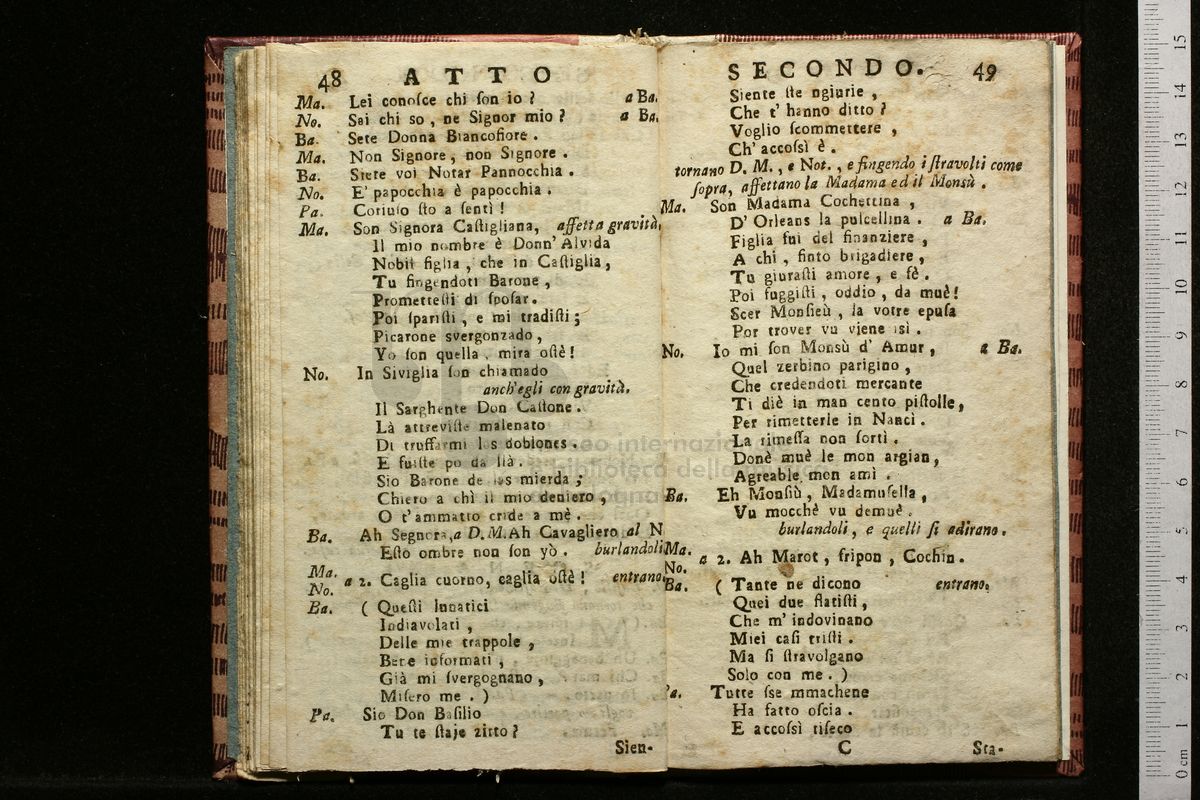 48 ATTO
Ma. Lei conoſce chi ſon io? a Ba.
No. Sai chi so, ne Signor mio? a Ba.
Ba. Sete Donna Biancofiore.
Ma. Non Signore, non Signore.
Ba. Siete voi Notar Pannocchia.
No. E' papocchia è papocchia.
Pa. Coriuſo ſto a ſentì!
Ma. Son Signora Caſtigliana, affetta gravità.
Il mio nombre è Donn' Alvida
Nobil figlia, che in Caſtiglia,
Tu fingendoti Barone,
Prometteſti di ſpoſar.
Poi ſpariſti, e mi tradiſti;
Picarone svergonzado,
Yo ſon quella, mira oſtè!
No. In Siviglia ſon chiamado
anch'egli con gravità.
Il Sarghente Don Caſtone.
Là attreviſte malenato
Di truffarmi los doblones.
E fuiſte po da llà.
Sio Barone de los mierda;
Chiero a chì il mio deniero,
O t'ammatto cride a mè.
Ba. Ah Segnora, a D. M. Ah Cavagliero al N
Eſto ombre non ſon yò. burlandoli
Ma.
No. a 2. Caglia cuorno, caglia oſtè! entrano.
Ba. (Queſti lunatici
Indiavolati,
Delle mie trappole,
Bene informati,
Già mi ſvergognano,
Miſero me.)
Pa. Sio Don Baſilio
Tu te ſtaje zitto?
Sien-
SECONDO. 49
Siente ſte ngiurie,
Che t' hanno ditto?
Voglio ſcommettere,
Ch' accoſsì è.
tornano D. M., e Not., e fingendo i ſtravolti come
ſopra, affettano la Madama ed il Monsù.
Ma. Son Madama Cochettina,
D' Orleans la pulcellina. a Ba.
Figlia fui del finanziere,
A chi, finto brigadiere,
Tu giuraſti amore, e fè.
Poi fuggiſti, oddio, da muè!
Scer Monſieù, la votre epuſa
Por trover vu viene isì.
No. Io mi ſon Monsù d' Amur, a Ba.
Quel zerbino parigino,
Che credendoti mercante
Ti diè in man cento piſtolle,
Per rimetterle in Nancì.
La rimeſſa non ſortì.
Donè muè le mon argian,
Agreable mon amì.
Ba. Eh Monſiù, Madamuſella,
Vu mocchè vu demuè.
burlandoli, e quelli ſi adirano.
Ma.
No. a 2. Ah Marot, fripon, Cochin.
Ba. (Tante ne dicono entrano.
Quei due flatiſti,
Che m' indovinano
Miei caſi triſti.
Ma ſi ſtravolgano
Solo con me.)
Pa. Tutte ſse mmachene
Ha fatto oſcia.
E accoſsì tiſeco
C Sta-